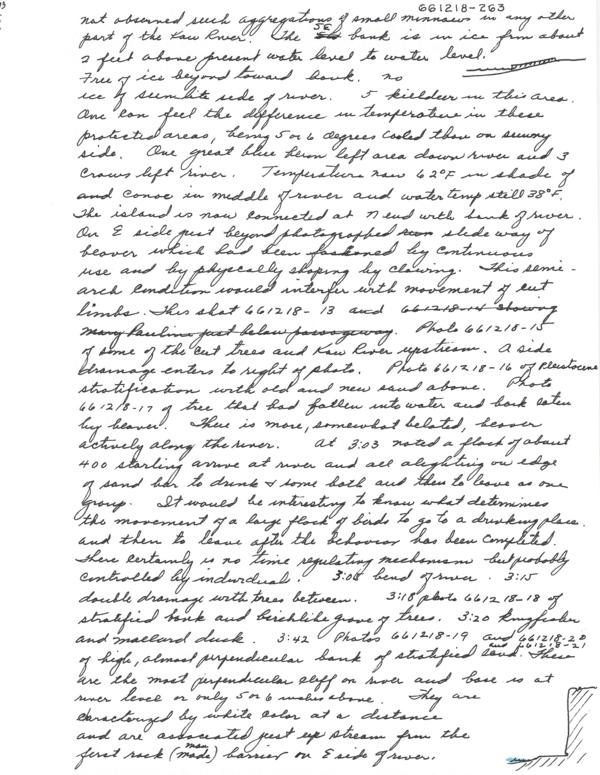 661218-263
not observed such aggregations of small minnows in any other
part of the Kaw River. The SE bank is in ice from about
2 feet above present water level to water level.
Free of ice beyond toward bank. no
ice of side of river. 5 kieldeer in this area.
One can feel the difference in temperature in these
protected areas, being 5 or 6 degrees cooled than on sunny
side. One great blue heron left area down river and 3
Crows left river. Temperature now 62°F in shade of
and Canoe in middle of river and water temp still 38°F.
The island is now connected at N end with bank of river.
On E side just beyond photographed slide way of
beaver which had been fashoned by continuous
use and by physically shaping by clawing. This semi-
arch condition would interfer with movement of cut
limbs. This shot 661218-13 and 661218-14 showing
many just below passageway. Photo 661218-15
of some of the cut trees and Kaw River upstream. A side
drainage enters to right of photo. Photo 661218-16 of Pleistocene
stratification with old and new sand above. Photo
661218-17 of tree that had fallen into water and bark eaten
by beaver. There is more, somewhat belated, beaver
actively along the river. At 3:03 noted a flock of about
400 starling arrive at river and all alighting on edge
of sand bar to drink & some bath and then to leave as one
group. It would be interesting to know what determines
the movement of a large flock of birds to go to a drinking place.
and then to leave after the behavior has been completed.
There certainly is no time regulating mechanism but probably
controlled by individual. 3:08 bend of river. 3:15
double drainage with trees between. 3:18 photo 661218-18 of
stratified bank and birchlike grove of trees. 3:20 kingfisher
and mallard duck. 3:42 Photos 661218-19 and 661218-20
and 661218-21
of high, almost perpendicular bank of stratified sand. These
are the most perpendicular cliff on river and base is at
river level or only 5 or 6 inches above. They are
characterized by white color at a distance
and are associated just up stream from the
first rock (man made) barrier on E side of river.